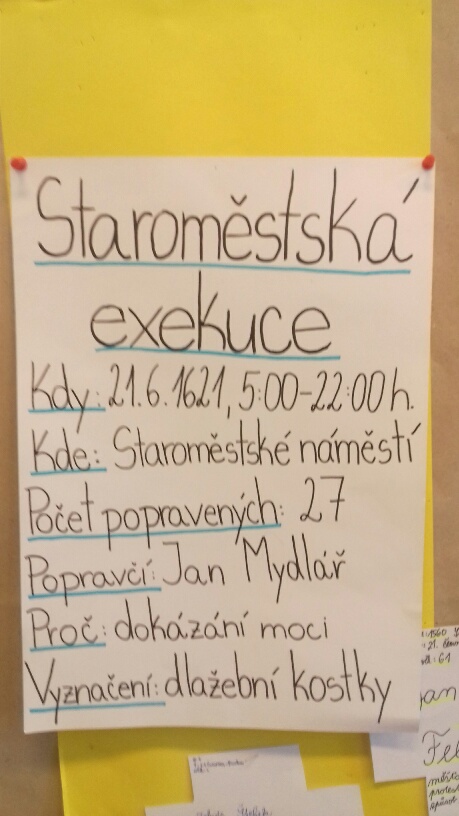 Staroměstská
exekuce
Kdy: 21.6.1621, 5:00-22:00 h.
Kde: Staroměstské náměstí
Počet popravených: 27
Popravčí: Jan Mydlář
Proč: dokázání moci
Vyznačení: dlažební kostky